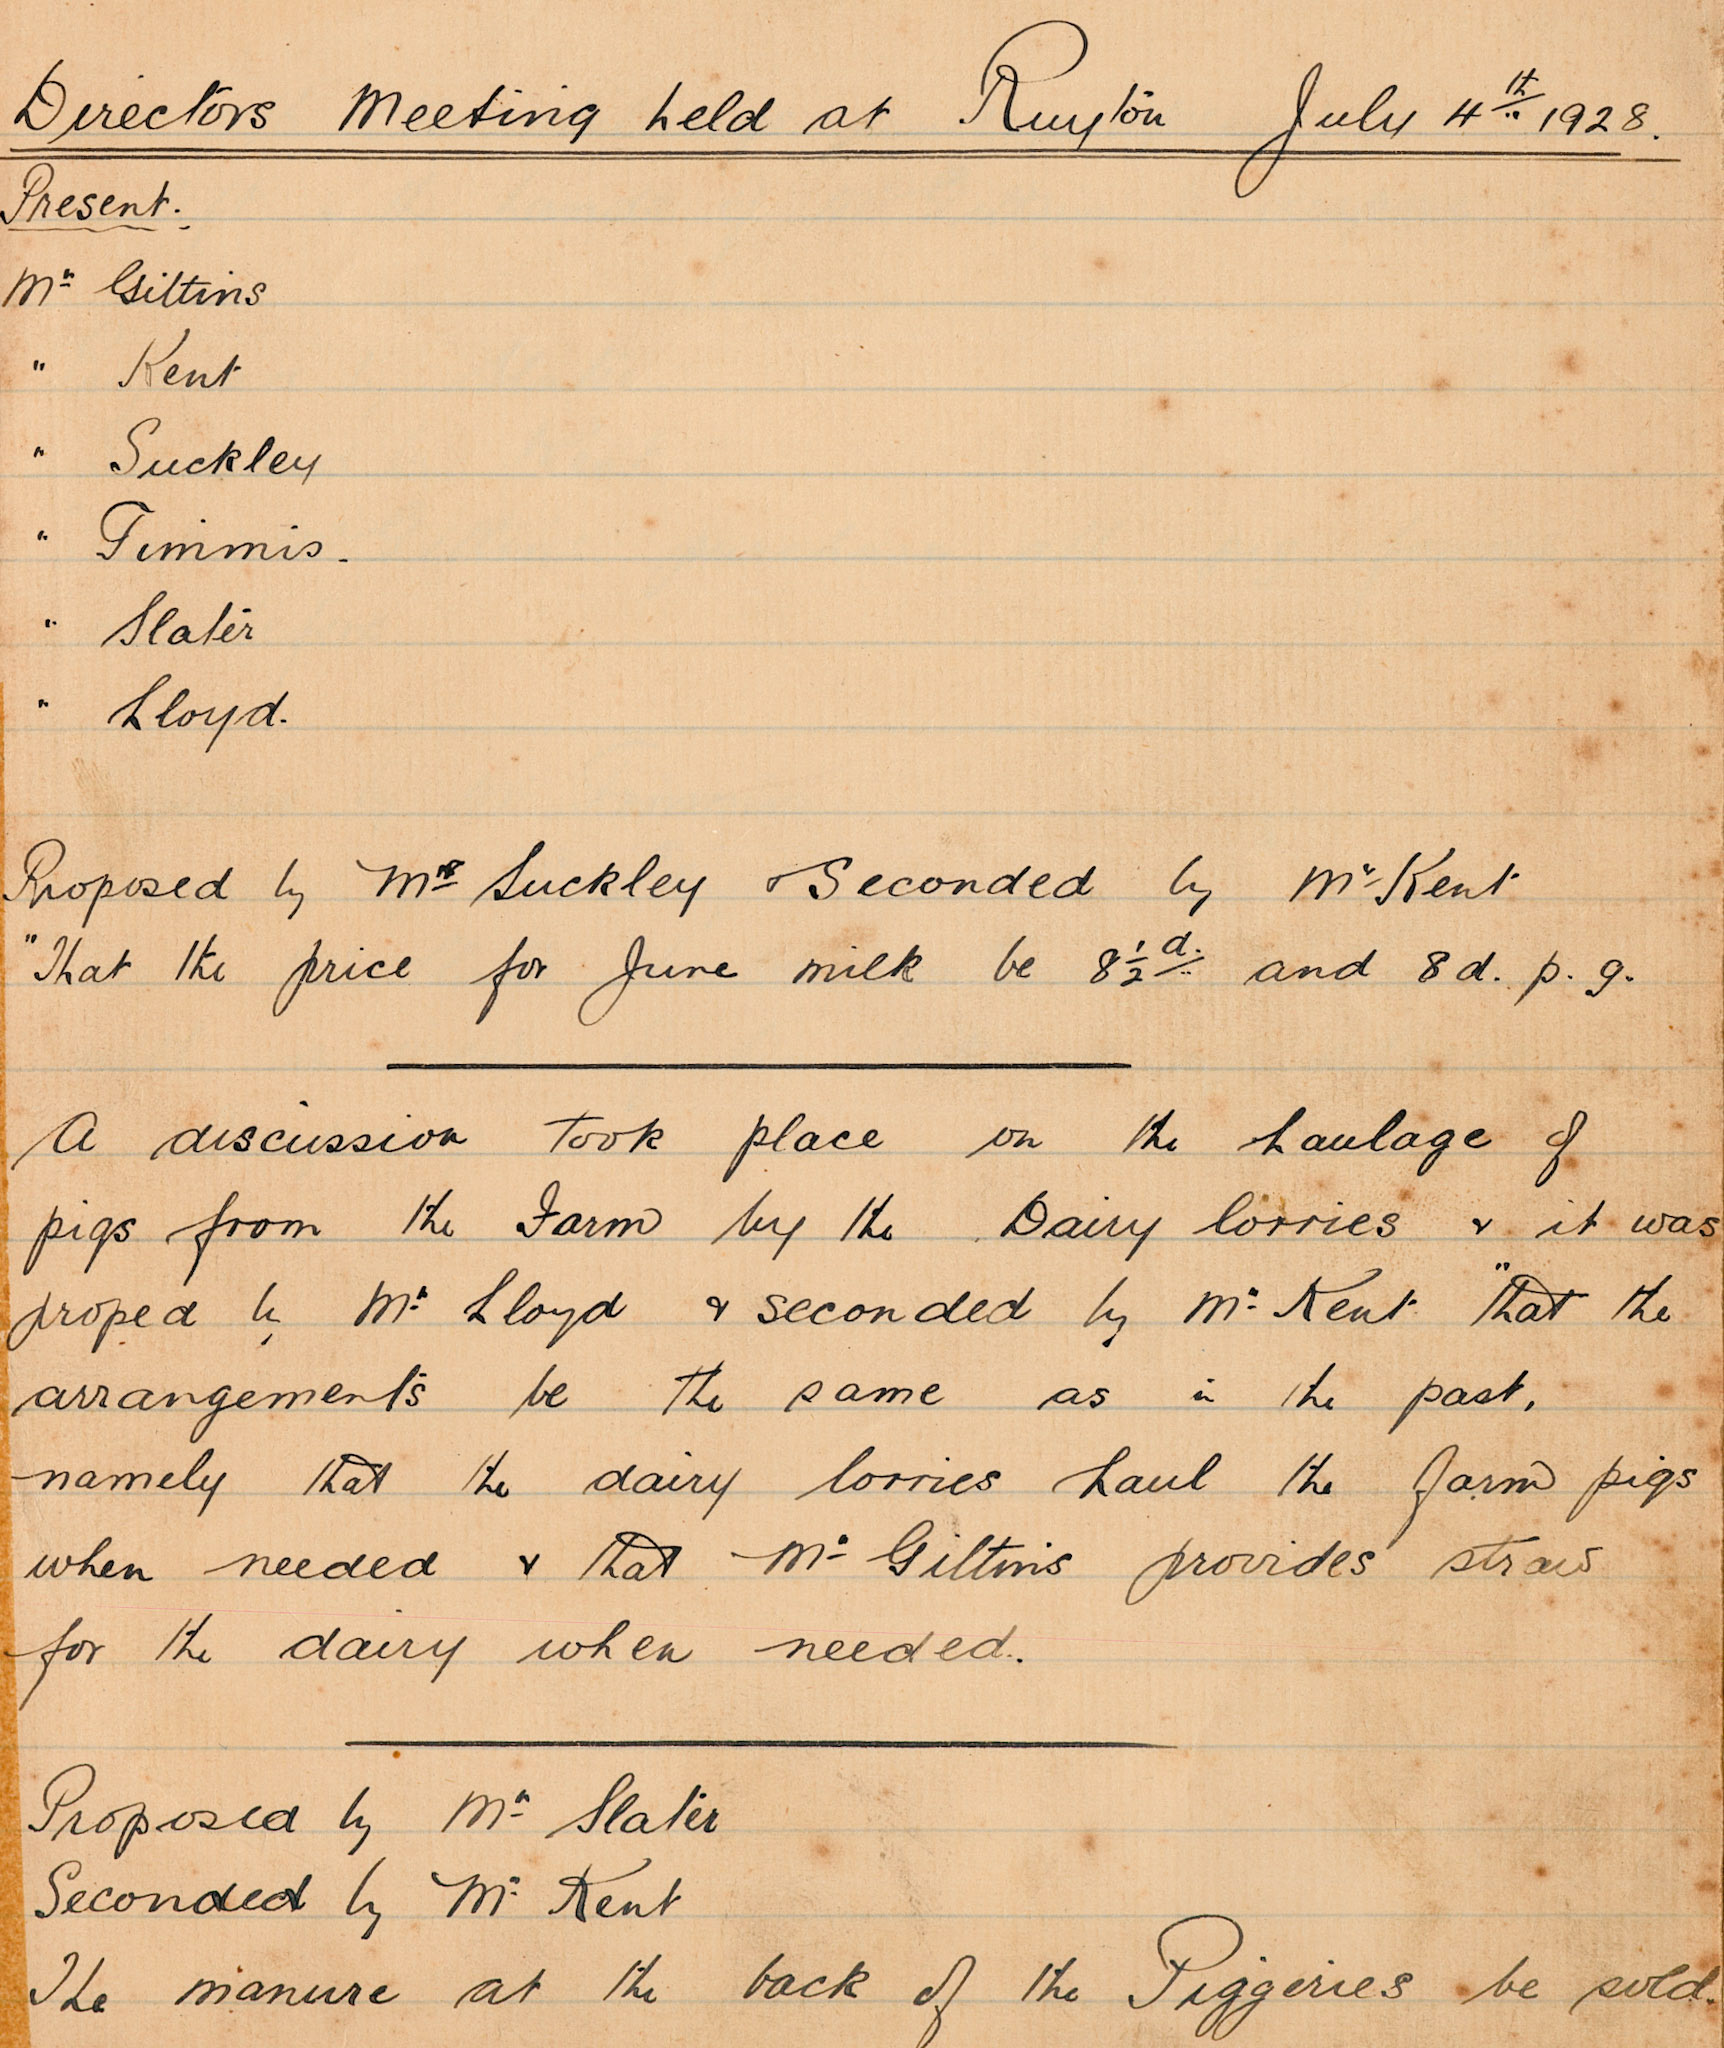 Directors Meeting held at Ruyton July 4th 1928.
Present.
Mr Giltins
" Kent
" Suckley
" Timmis.
" Slater
" Lloyd.
Proposed by Mr Suckley & Seconded by Mr Kent
"That the price for June milk be 8½d. and 8d. p. g.
A discussion took place on the haulage of
pigs from the Farm by the Dairy lorries & it was
proped by Mr Lloyd & seconded by Mr Kent "that the
arrangements be the same as in the past,
namely that the dairy lorries haul the farm pigs
when needed & that Mr Giltins provides straw
for the dairy when needed.
Proposed by Mr Slater
Seconded by Mr Kent
The manure at the back of the Piggeries be sold.